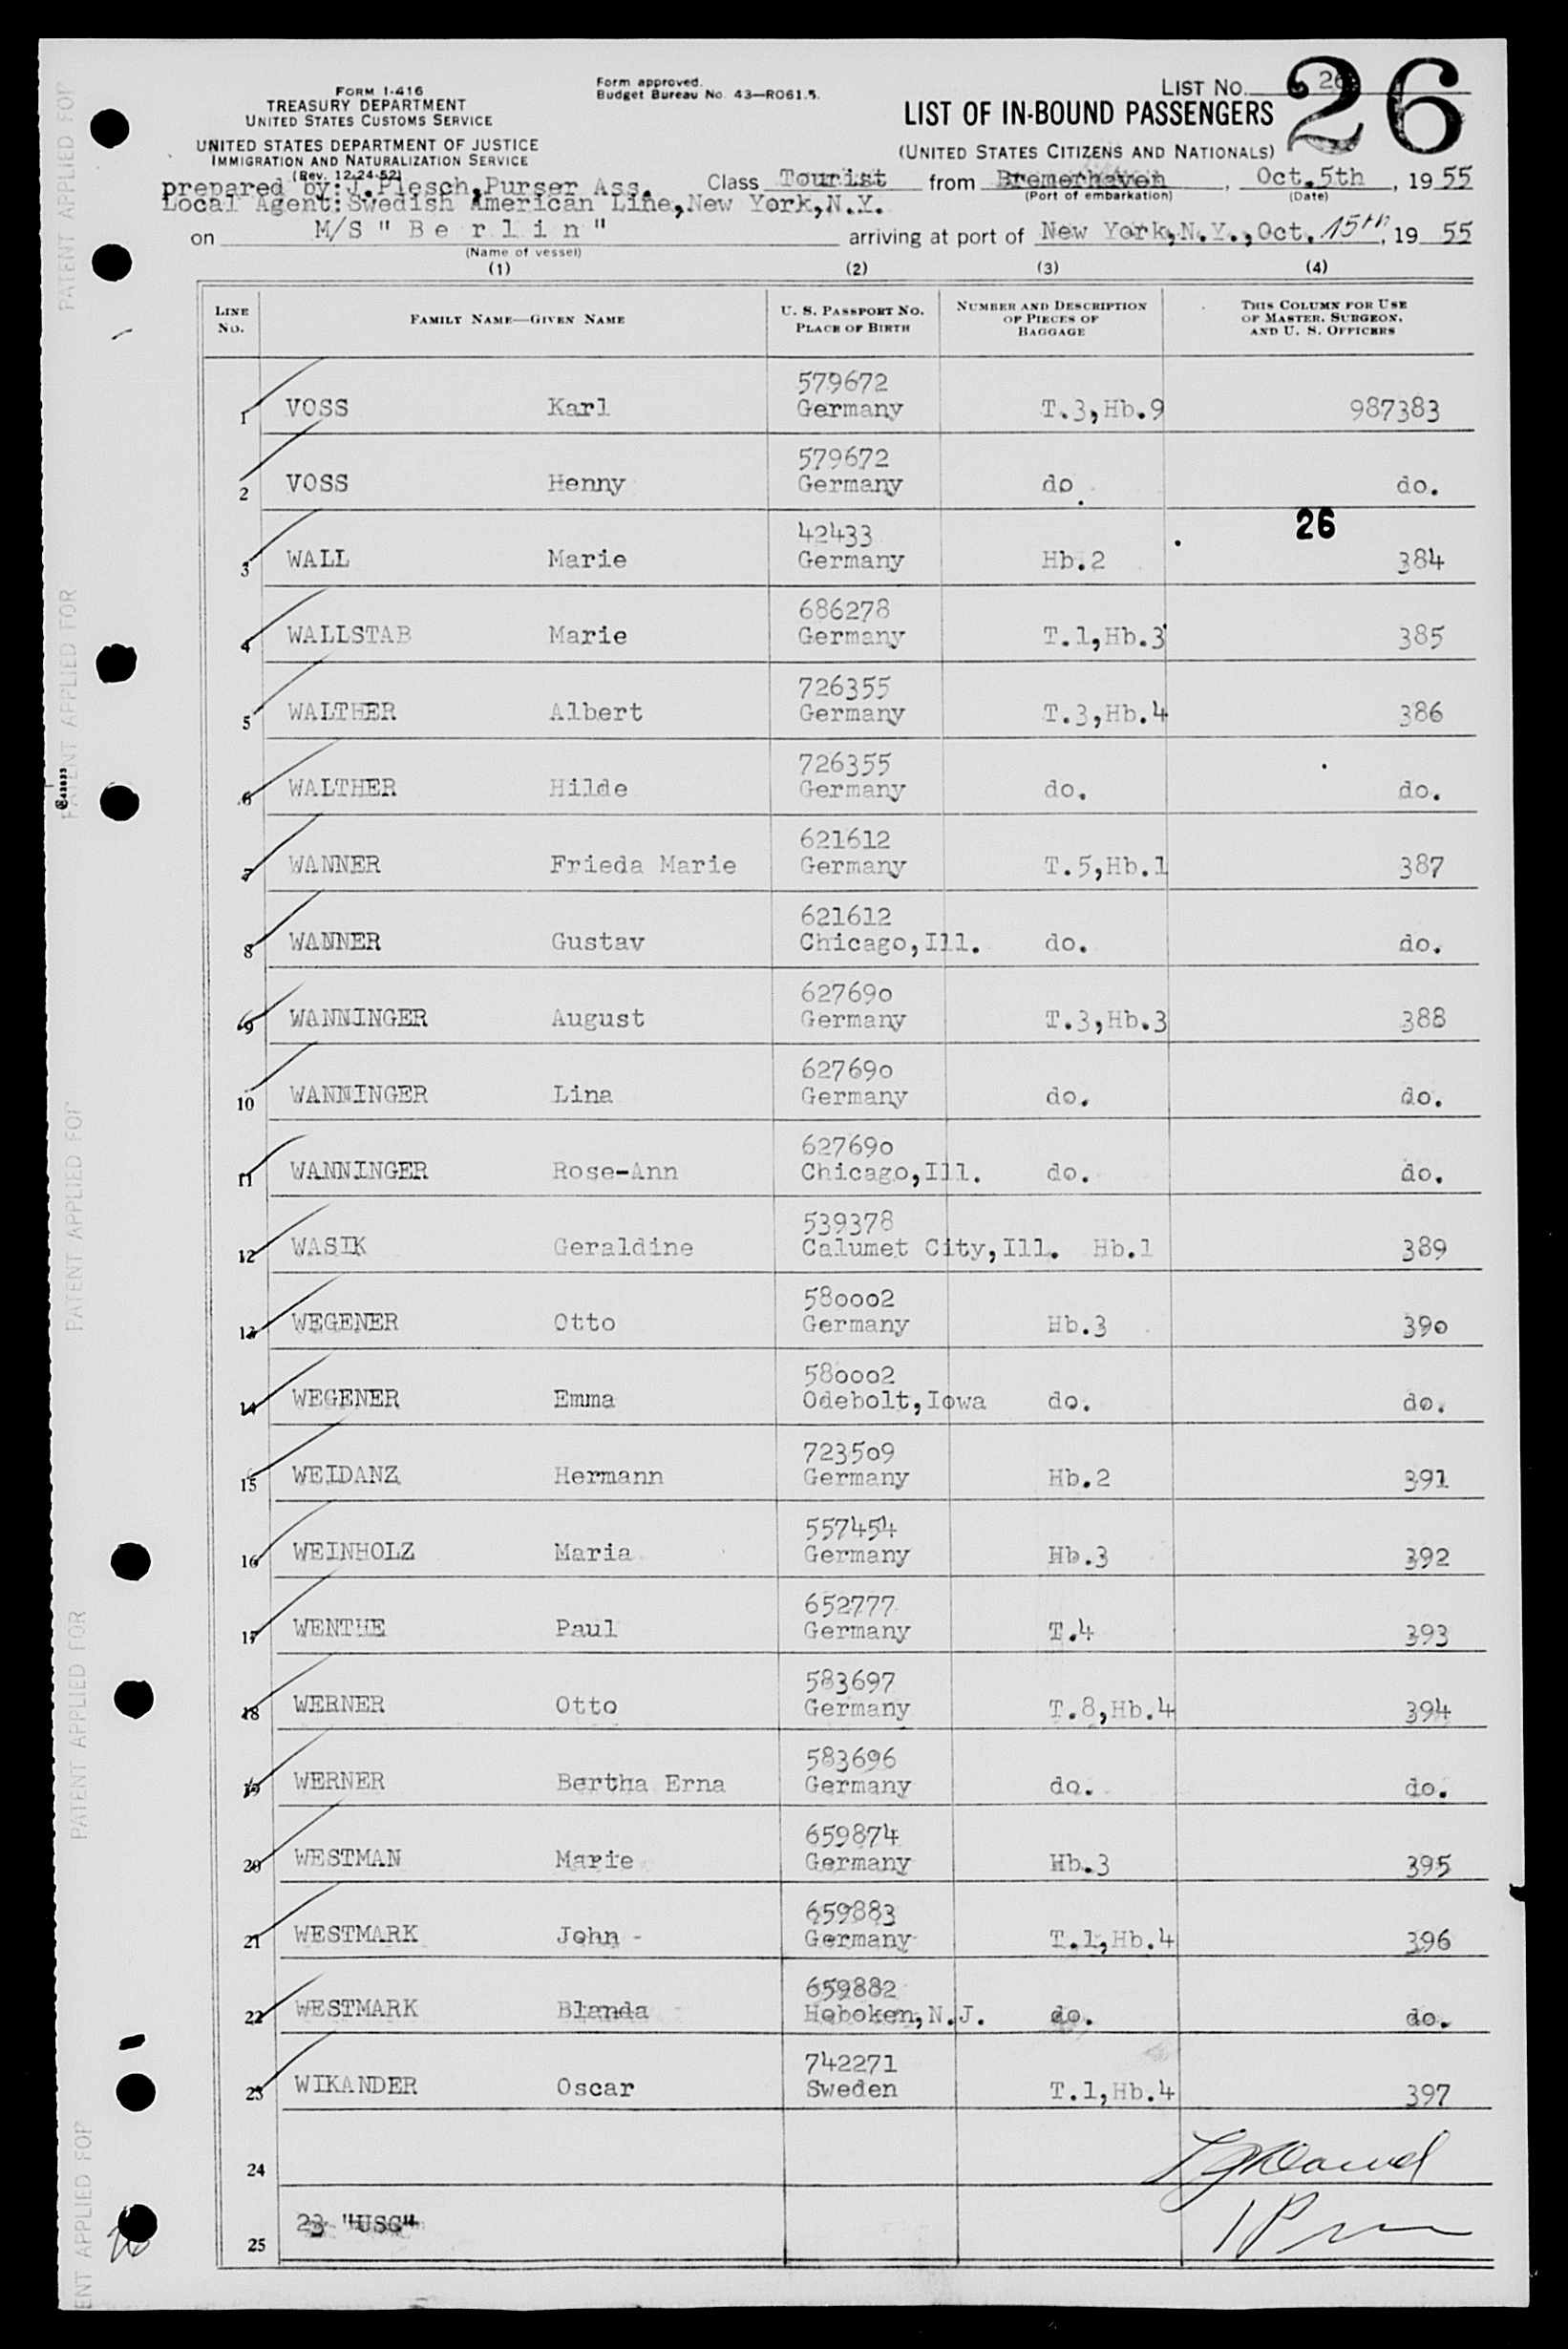 FORM I-416
TREASURY DEPARTMENT
UNITED STATES CUSTOMS SERVICE
UNITED STATES DEPARTMENT OF JUSTICE
IMMIGRATION AND NATURALIZATION SERVICE
(Rev. 12-24-52)
Form approved.
Budget Bureau No. 43—RO61.5.
LIST No. 26
26
LIST OF IN-BOUND PASSENGERS
(UNITED STATES CITIZENS AND NATIONALS)
prepared by: J.Plesch,Purser Ass. Class Tourist from Bremerhaven, Oct.5th, 1955
(Port of embarkation) (Date)
Local Agent: Swedish American Line,New York,N.Y.
on M/S " B e r l i n " arriving at port of New York,N.Y.,Oct. 15th, 1955
(Name of vessel)
(1) (2) (3) (4)
LINE No. FAMILY NAME—GIVEN NAME U. S. PASSPORT NO. PLACE OF BIRTH NUMBER AND DESCRIPTION OF PIECES OF BAGGAGE THIS COLUMN FOR USE OF MASTER, SURGEON, AND U. S. OFFICERS
579672
1 VOSS Karl Germany T.3,Hb.9 987383
579672
2 VOSS Henny Germany do. do.
26
42433
3 WALL Marie Germany Hb.2 384
686278
4 WALLSTAB Marie Germany T.1,Hb.3 385
726355
5 WALTHER Albert Germany T.3,Hb.4 386
726355
6 WALTHER Hilde Germany do. do.
621612
7 WANNER Frieda Marie Germany T.5,Hb.1 387
621612
8 WANNER Gustav Chicago,Ill. do. do.
627690
9 WANNINGER August Germany T.3,Hb.3 388
627690
10 WANNINGER Lina Germany do. do.
627690
11 WANNINGER Rose-Ann Chicago,Ill. do. do.
539378
12 WASIK Geraldine Calumet City,Ill. Hb.1 389
580002
13 WEGENER Otto Germany Hb.3 390
580002
14 WEGENER Emma Odebolt,Iowa do. do.
723509
15 WEIDANZ Hermann Germany Hb.2 391
557454
16 WEINHOLZ Maria Germany Hb.3 392
652777
17 WENTHE Paul Germany T.4 393
583697
18 WERNER Otto Germany T.8,Hb.4 394
583696
19 WERNER Bertha Erna Germany do. do.
659874
20 WESTMAN Marie Germany Hb.3 395
659883
21 WESTMARK John - Germany T.1,Hb.4 396
659882
22 WESTMARK Blanda Hoboken,N.J. do. do.
742271
23 WIKANDER Oscar Sweden T.1,Hb.4 397
24
25 23 "USC"
PATENT APPLIED FOR
PATENT APPLIED FOR
PATENT APPLIED FOR
PATENT APPLIED FOR
ENT APPLIED FOR